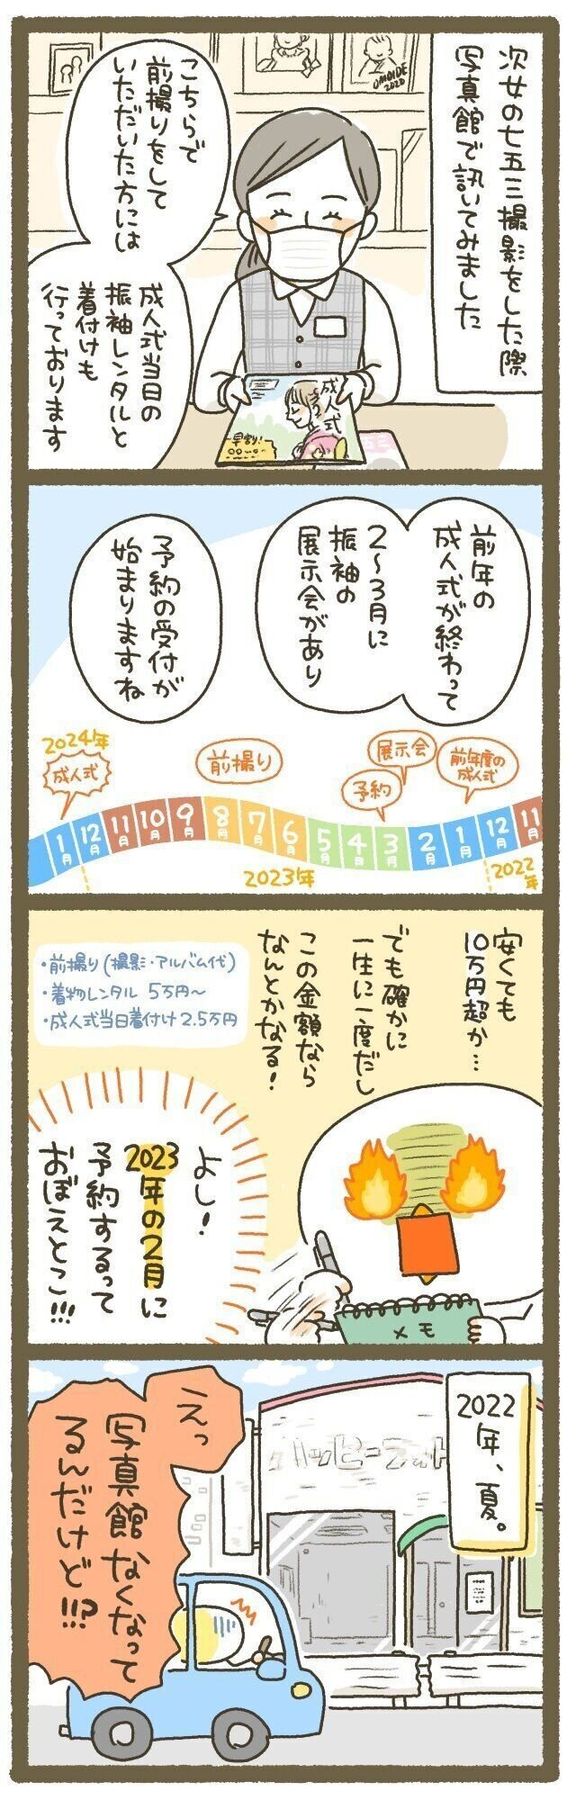 次女の七五三撮影をした際
写真館で訊いてみました
こちらで
前撮りをして
いただいた方には
成人式当日の
振袖レンタルと
着付けも
行っております
OMOIDE
2020
成人式
早割!
前年の
成人式が終わって
2~3月に
振袖の
展示会があり
予約の受付が
始まりますね
2024年
成人式
前撮り
展示会
予約
前年度の
成人式
1月
12月
11月
10月
9月
8月
7月
6月
5月
4月
3月
2月
1月
12月
11月
2023年
2022年
安くても
10万円超か…
でも確かに
一生に一度だし
この金額なら
なんとかなる!
・前撮り(撮影・アルバム代)
・着物レンタル 5万円~
・成人式当日着付け2.5万円
よし!
2023年の2月に
予約するって
おぼえとこ!!!
メモ
2022年、夏。
ハッピーフォト
えっ
写真館なくなって
るんだけど!!?